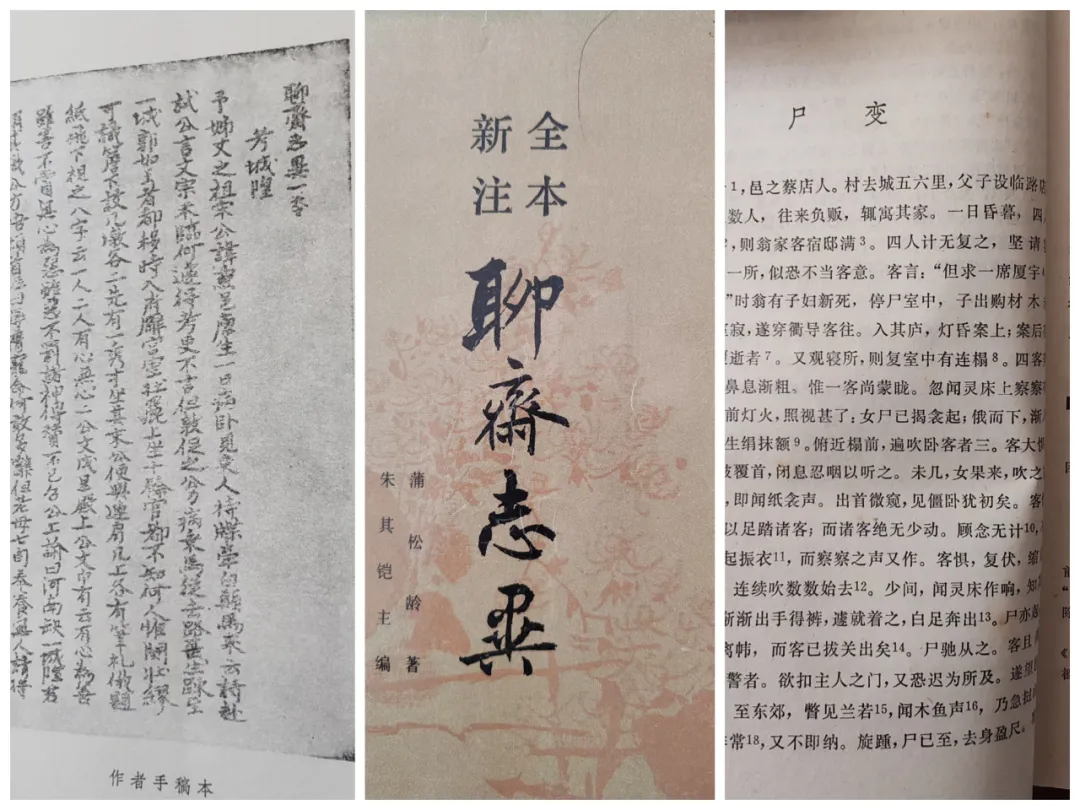 聊齋志異一卷
考城隍
予姊丈之祖宋公諱燾邑廩生一日病臥見吏人持牒牽白顛馬來云請赴
試公言文宗未臨何遽得考吏不言但敦促之公力病乘馬從去路甚生疎至
一城郭如王者都移時入府廨宮室壯麗上坐十餘官都不知何人惟關壯繆
可識簷下設几墩各二先有一秀才坐其末公便與連肩几上各有筆札俄題
紙飛下視之八字云一人二人有心無心二公文成呈殿上公文中有云有心為善
雖善不賞無心為惡雖惡不罰諸神傳贊不已召公上諭曰河南缺一城隍君
其職公方悟頓首泣曰辱膺寵命何敢多辭但老母七旬奉養無人請得
作者手稿本
全本
新注
聊齋志異
蒲松龄著
朱其铠主编
尸变
1，邑之蔡店人。村去城五六里，父子设临路店
数人，往来负贩，辄寓其家。一日昏暮，四
，则翁家客宿邸满3。四人计无复之，坚请
一所，似恐不当客意。客言：“但求一席厦宇
”时翁有子妇新死，停尸室中，子出购材木
寂，遂穿衢导客往。入其庐，灯昏案上；案后
逝者7。又观寝所，则复室中有连榻8。四客
鼻息渐粗。惟一客尚蒙眬。忽闻灵床上察察
前灯火，照视甚了：女尸已揭衾起；俄而下，渐
生绢抹额9。俯近榻前，遍吹卧客者三。客大惧
覆首，闭息忍咽以听之。未几，女果来，吹之
，即闻纸衾声。出首微窥，见僵卧犹初矣。客
以足踏诸客；而诸客绝无少动。顾念无计10，
起振衣11，而察察之声又作。客惧，复伏，缩
连续吹数数始去12。少间，闻灵床作响，知
渐渐出手得裤，遽就着之，白足奔出13。尸亦起
离帏，而客已拔关出矣14。尸驰从之。客且
警者。欲扣主人之门，又恐迟为所及。遂望
至东郊，瞥见兰若15，闻木鱼声16，乃急挝
常18，又不即纳。旋踵，尸已至，去身盈尺。